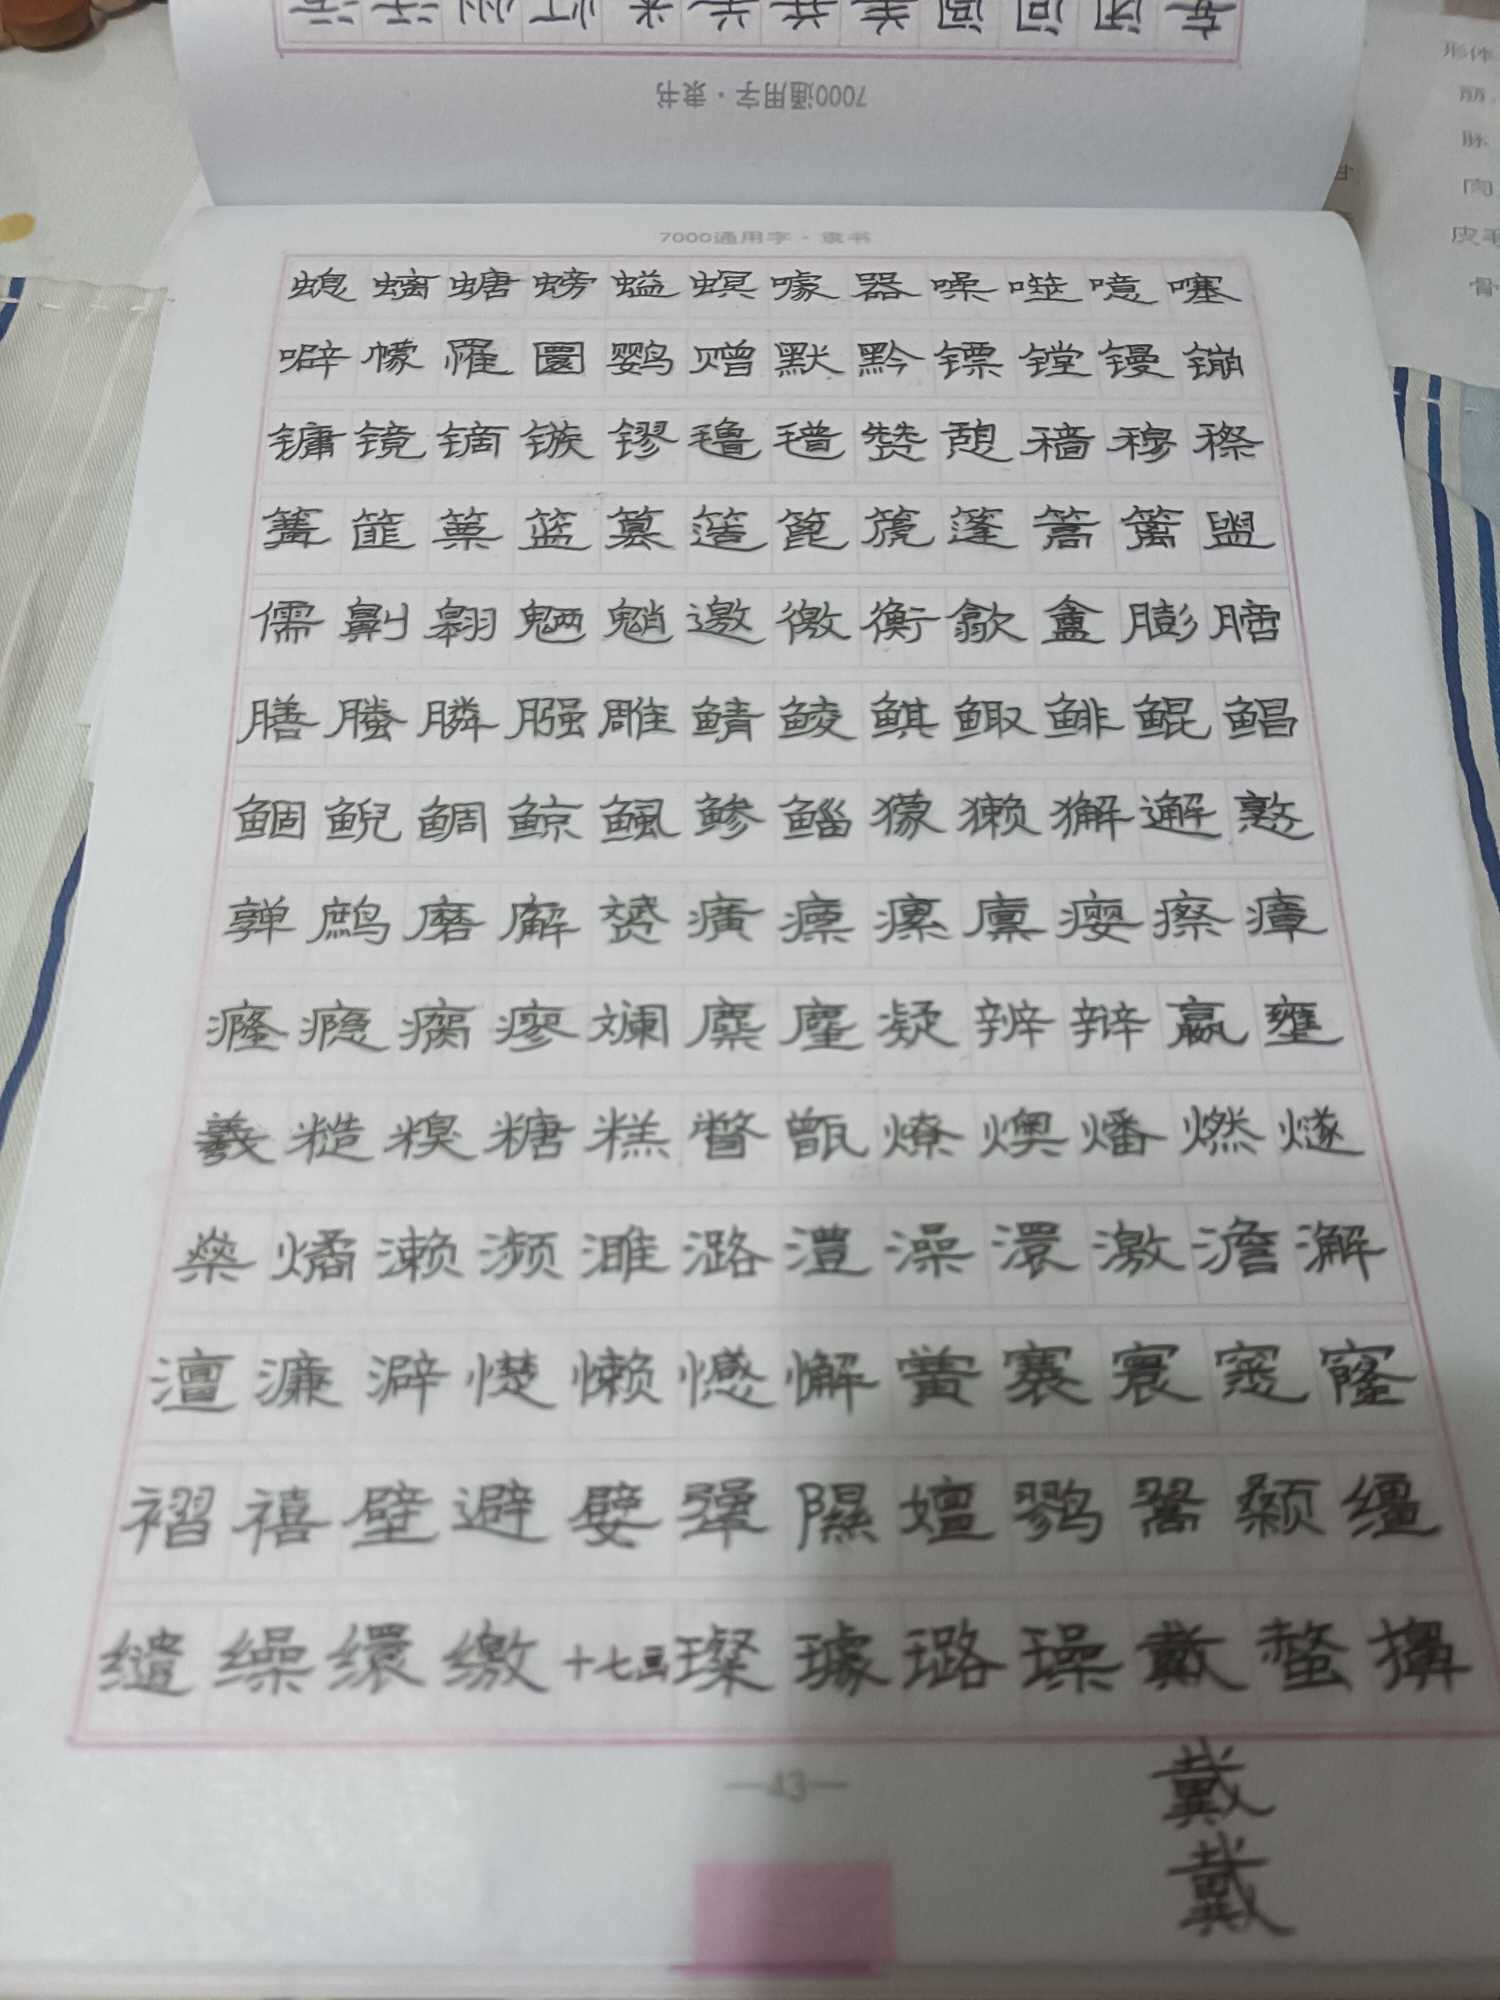 7000通用字·隶书
7000通用字·隶书
螅螭螗螃螠螟噱器噪噬噫噻
噼幪罹圜鹦赠默黔镖镗镘镚
镛镜镝镞镠氇氆赞憩穑穆穄
篝篚篥篮篡簉篦篪篷篙篱盥
儒劓翱魉魈邀徼衡歙盒膨膪
膳螣膦膙雕鲭鲮鲯鲰鲱鲲鲳
鲴鲵鲷鲸鲺鲹鲻獴獭獬邂憝
亸鹧磨廨赟癀瘭瘰廪瘿瘵瘴
癃瘾瘸瘳斓麇麈凝辨辩嬴壅
羲糙糗糖糕瞥甑燎燠燔燃燧
燊燏濑濒濉潞澧澡澴激澹澥
澶濂澼憷懒憾懈黉褰寰窸窿
褶禧壁避嬖犟隰嬗鹨翯颡缰
缱缲缳缴十七画璨璩璐璪戴螫擤
43
戴
戴
形体
丽
脉
肉
皮毛
骨